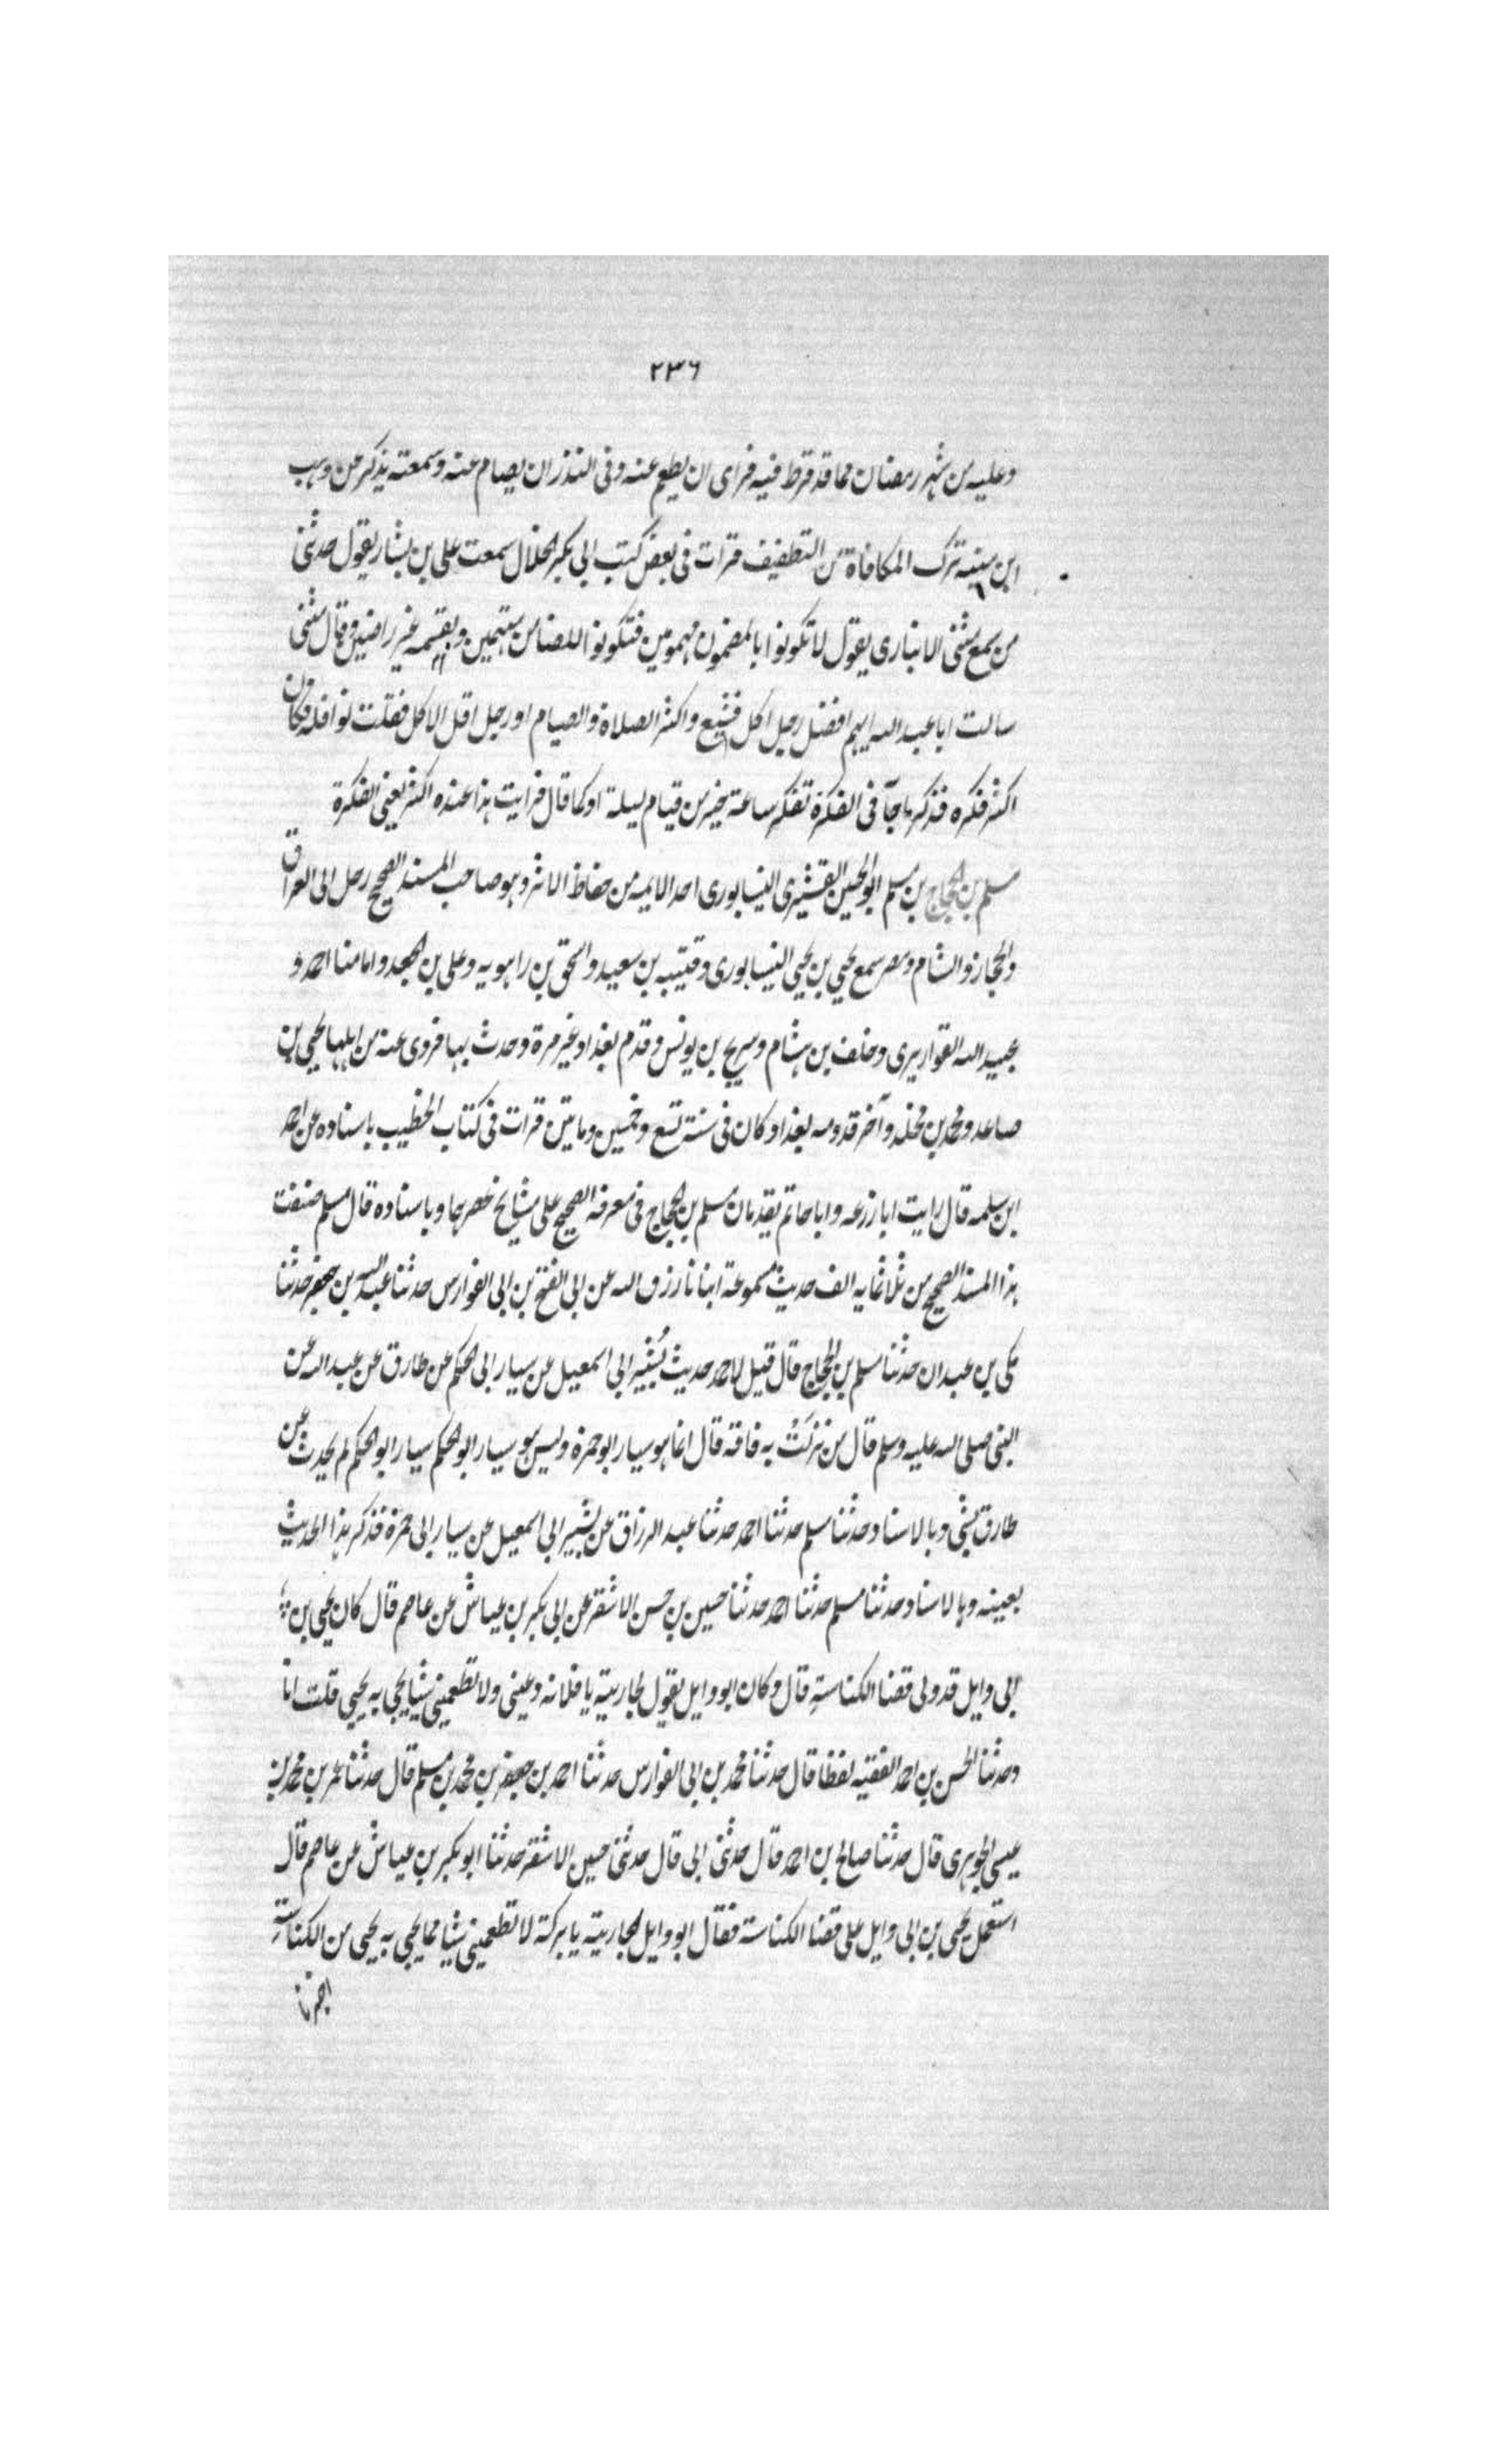 ٢٣٦
وعليه من شهر رمضان مما قد فرط فيه فراى ان يطعم عنه وفى النذر ان يصام عنه وسمعته يذكر عن وهب
ابن منبه ترك المكافاة من التطفيف قرات فى بعض كتب ابى بكر الخلال سمعت على بن بشار يقول حدثنى
من سمع مثنى الانبارى يقول لا تكونوا بالمضمون مهمومين فتكونوا للضامن متهمين وبقسمه غير راضين وقال مثنى
سالت ابا عبد الله ايهم افضل رجل اكل فشبع واكثر الصلاة والصيام او رجل اقل الاكل فقلت نوافله فكان
اكثر فكره فذكر ما جآ فى الفكرة تفكر ساعة خير من قيام ليلة او كما قال فرايت هذا عنده اكثر يعنى الفكرة
مسلم بن الحجاج بن مسلم ابو الحسين القشيرى النيسابورى احد الايمه من حفاظ الاثر وهو صاحب المسند الصحيح رحل الى العراق
والحجاز والشام ومصر سمع يحيى بن يحيى النيسابورى وقتيبه بن سعيد واسحق بن راهويه وعلى بن الجعد وامامنا احمد و
عبيد الله القواريرى وخلف بن هشام وسريج بن يونس وقدم بغداد غير مرة وحدث بها فروى عنه من اهلها يحيى بن
صاعد ومحمد بن مخلد وآخر قدومه بغداد كان فى سنة تسع وخمسين وماتين قرات فى كتاب الخطيب باسناده عن احمد
ابن سلمه قال رايت ابا زرعه وابا حاتم يقدمان مسلم بن الحجاج فى معرفه الصحيح على مشايخ عصرهما وباسناده قال مسلم صنفت
هذا المسند الصحيح من ثلاثمايه الف حديث مسموعة انبانا رزق الله عن ابى الفتح بن ابى الفوارس حدثنا عبد الله بن جعفر حدثنا
مكى بن عبدان حدثنا مسلم بن الحجاج قال قيل لاحمد حديث بُشير ابى اسمعيل عن سيار ابى الحكم عن طارق عن عبد الله عن
النبى صلى الله عليه وسلم قال من نزلَتْ به فاقه قال انما هو سيار ابو حمزة وليس هو سيار ابو الحكم سيار ابو الحكم لم يحدث عن
طارق بشى وبالاسناد حدثنا مسلم حدثنا احمد حدثنا عبد الرزاق عن بشير ابى اسمعيل عن سيار ابى حمزة فذكر هذا الحديث
بعينه وبالاسناد حدثنا مسلم حدثنا احمد حدثنا حسين بن حسن الاشقر عن ابى بكر بن عياش عن عاصم قال كان يحيى بن
ابى وايل قد ولى قضا الكناسةِ قال وكان ابو وايل يقول لجاريته يا فلانه دعينى ولا تطعمينى شيا يجى به يحيى قلت انا
وحدثنا الحسن بن احمد الفقيه لفظا قال حدثنا محمد بن ابى الفوارس حدثنا احمد بن جعفر بن محمد بن مسلم قال حدثنا عمر بن محمد بن
عيسى الجوهرى قال حدثنا صالح بن احمد قال حدثنى ابى قال حدثنى حسين الاشقر حدثنا ابو بكر بن عياش عن عاصم قال
استعمل يحيى بن ابى وايل على قضا الكناسة فقال ابو وايل لجاريته يا بركة لا تطعمينى شيا مما يجى به يحيى من الكناسةِ
اخبرنا